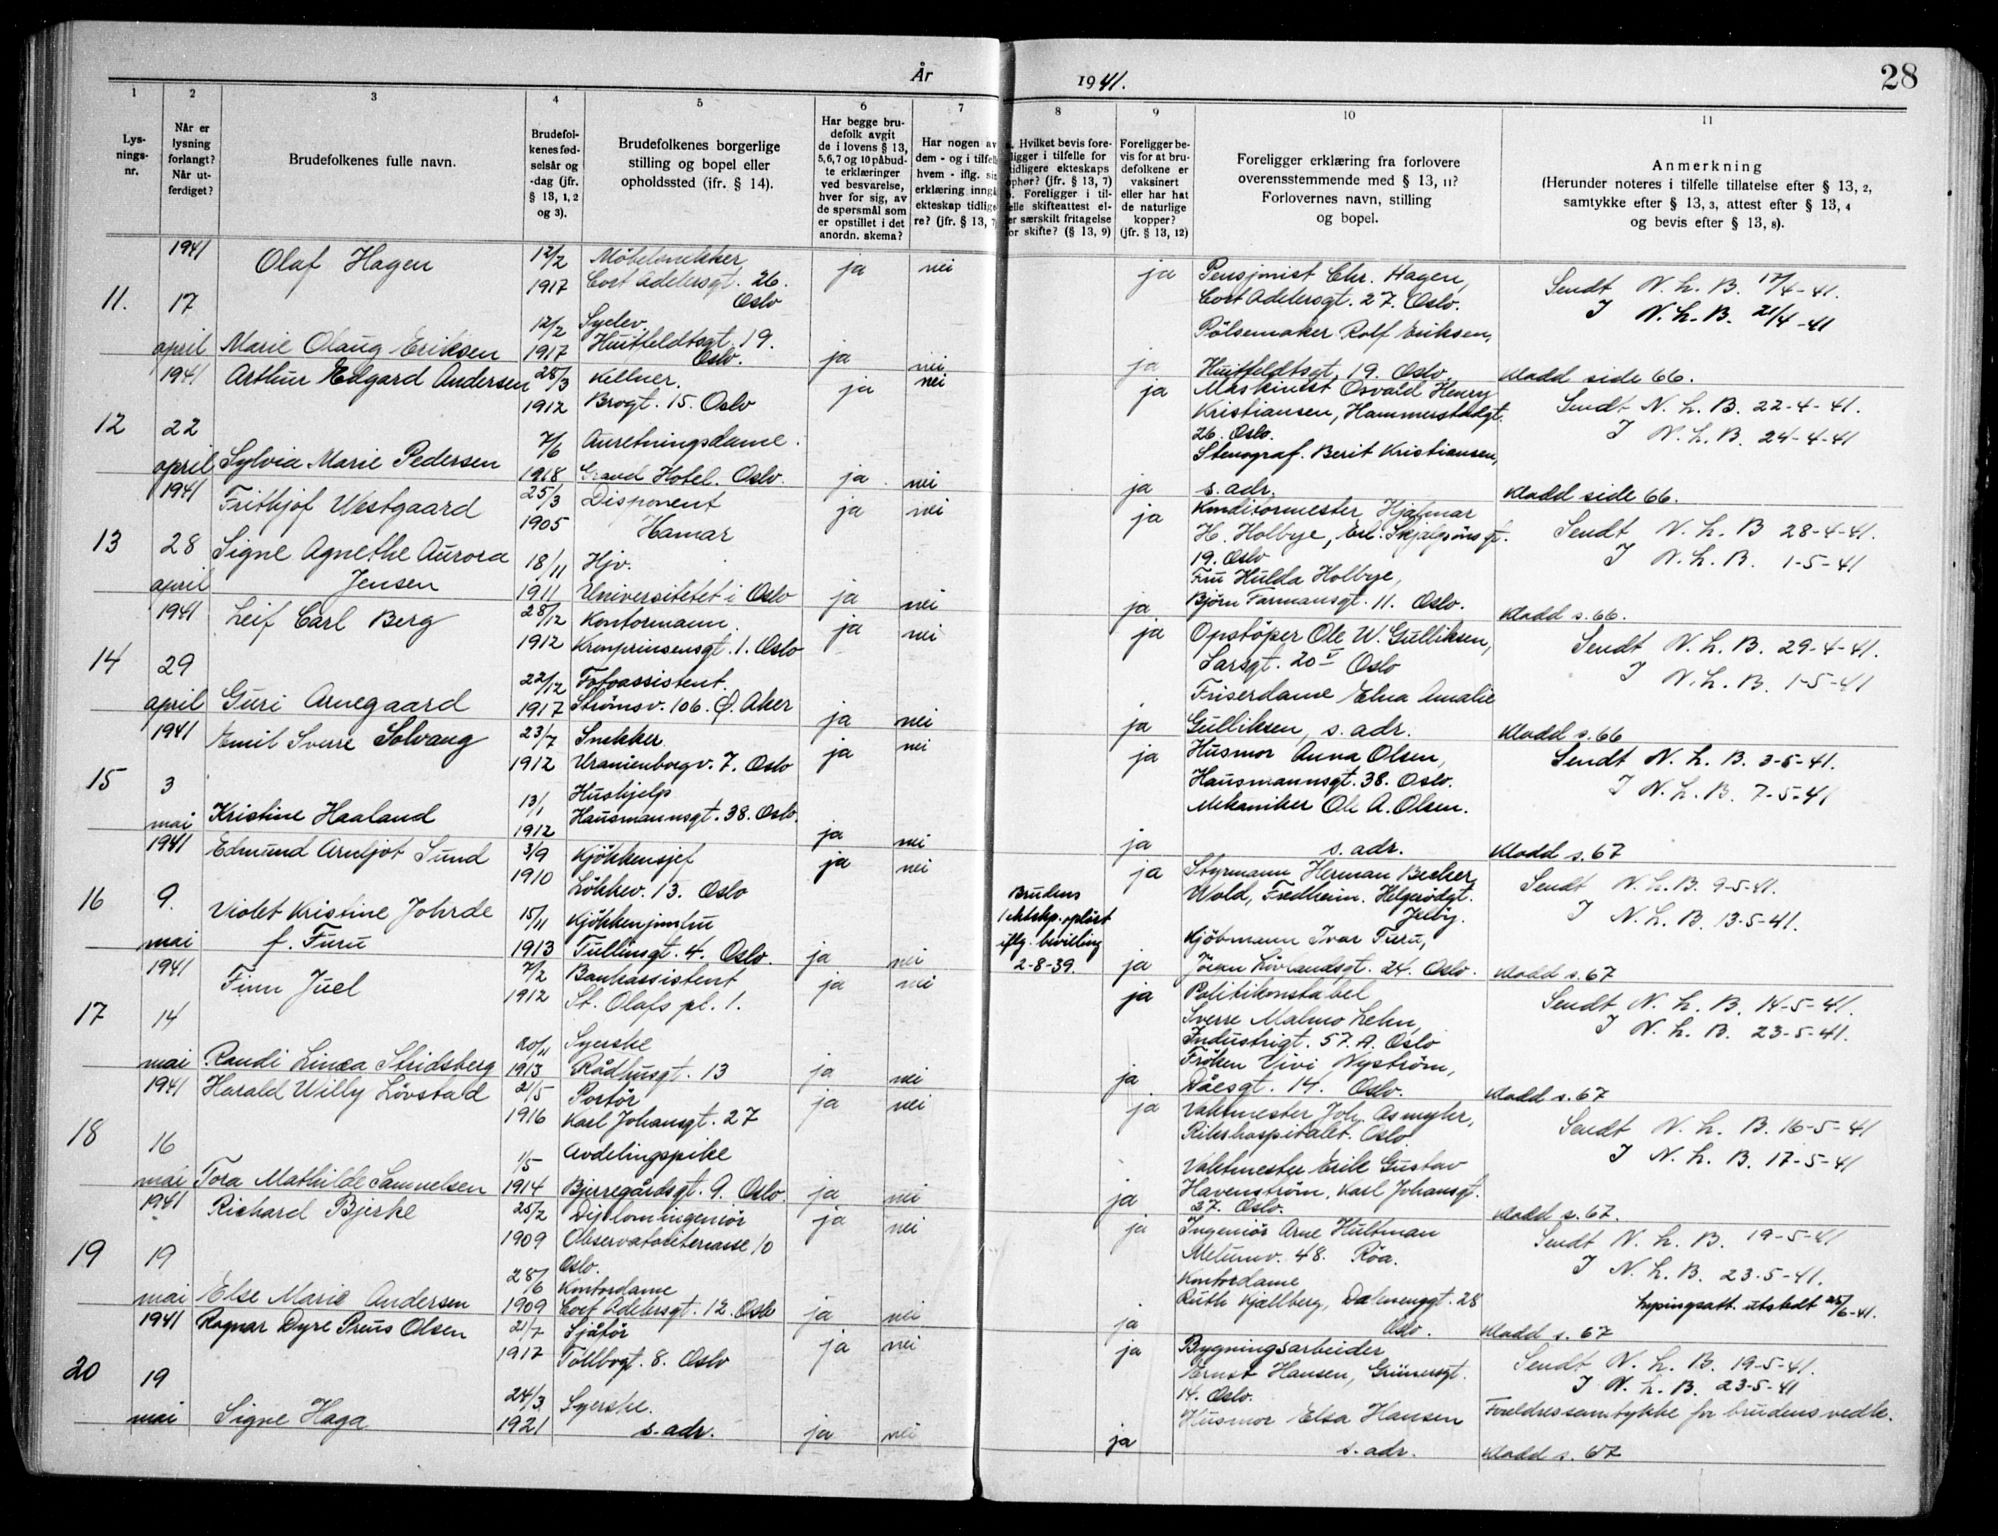 År 1941.
28
1
2
3
4
5
6
7
8
9
10
11
Lys-
nings-
nr.
Når er
lysning
forlangt?
Når ut-
ferdiget?
Brudefolkenes fulle navn.
Brudefol-
kenes fød-
selsår og
-dag (jfr.
§ 13, 1, 2
og 3).
Brudefolkenes borgerlige
stilling og bopel eller
opholdssted (ifr. § 14).
Har begge bru-
defolk avgit
de i lovens § 13,
5,6,7 og 10 påbud-
te erklæringer
ved besvarelse,
hver for sig, av
de spørsmål som
er opstillet i det
anordn. skema?
Har nogen av
dem - og i tilfelle
hvem - iflg. si
erklæring inngå
ekteskap tidlige
re? (jfr. § 13, 7
. Hvilket bevis fore-
ligger i tilfelle for
tidligere ekteskaps
ophør? (jfr. § 13, 7)
. Foreligger i til-
felle skifteattest el-
er særskilt fritagelse
for skifte? (§ 13, 9)
Foreligger be-
vis for at bru-
defolkene er
vaksinert
eller har hat
de naturlige
kopper?
(jfr. § 13, 12)
Foreligger erklæring fra forlovere
overensstemmende med § 13, 11?
Forlovernes navn, stilling
og bopel.
Anmerkning
(Herunder noteres i tilfelle tillatelse efter § 13, 2,
samtykke efter § 13, 3, attest efter § 13, 4
og bevis efter § 13, 8).
11.
1941
17
april
Olaf Hagen
12/2
1917
Møbelsnekker
Cort Adelersgt. 26.
Oslo
ja
nei
ja
Pensjonist Chr. Hagen,
Cort Adelersgt. 27. Oslo.
Sendt N. L. B. 17/4-41.
I N. L. B. 21/4-41
Marie Olaug Eriksen
12/2
1917
Syelev.
Huitfeldtsgt. 19.
Oslo.
ja
nei
ja
Pölsemaker Rolf Eriksen,
Huitfeldtsgt. 19. Oslo.
Kladd side 66.
12
1941
22
april
Arthur Edgard Andersen
28/3
1912
Kellner.
Brogt. 15. Oslo
ja
nei
ja
Maskinist Osvald Henry
Kristiansen, Hammerstadgt.
26. Oslo.
Sendt N. L. B. 22-4-41.
I N. L. B. 24-4-41
Sylvia Marie Pedersen
7/6
1918
Anretningsdame.
Grand Hotel. Oslo.
ja
nei
ja
Stenograf. Berit Kristiansen,
s. adr.
Kladd side 66.
13
1941
28
april
Frithjof Westgaard
25/3
1905
Disponent
Hamar
ja
nei
ja
Konditormester Hjalmar
H. Holbye, Erl. Skjalgsöns gt.
19. Oslo
Sendt N. L. B 28-4-41.
I N. L. B. 1-5-41
Signe Agnethe Aurora
Jensen
18/11
1911
Hjv.
Universitetet i Oslo
ja
nei
ja
Fru Hulda Holbye,
Bjørn Farmansgt. 11. Oslo.
Kladd s. 66.
14
1941
29
april
Leif Carl Berg
28/12
1912
Kontormann.
Kronprinsensgt. 1. Oslo
ja
nei
ja
Opstöper Ole W. Gulliksen,
Sarsgt. 20 V Oslo
Sendt N. L. B. 29-4-41.
I N. L. B. 1-5-41
Guri Arnegaard
22/12
1917
Fotoassistent.
Strömsv. 106. Ø. Aker
ja
nei
ja
Friserdame Elna Amalie
Gulliksen, s. adr.
Kladd s. 66
15
1941
3
mai
Emil Sverre Solvang
23/7
1912
Snekker.
Uranienborgv. 7. Oslo
ja
nei
ja
Husmor Anna Olsen,
Hausmannsgt. 38. Oslo.
Sendt N. L. B. 3-5-41.
I N. L. B. 7-5-41
Kristine Haaland
13/1
1912
Hushjelp
Hausmannsgt. 38. Oslo.
ja
nei
ja
Mekaniker Ole A. Olsen.
s. adr.
Kladd s. 67
16
1941
9.
mai
Edmund Arnljot Sund
3/9
1910
Kjökkensjef
Lökkev. 13. Oslo
ja
nei
ja
Styrmann Herman Becker
Wold, Fredheim. Helgerödgt.
Jelöy.
Sendt N. L. B. 9-5-41.
I N. L. B. 13-5-41.
Violet Kristine Johrde
f. Furu
15/11
1913
Kjökkenjomfru
Tullinsgt. 4. Oslo.
ja
nei
Brudens
1 ektskp. oplöst
iflg. bevilling
2-8-39.
ja
Kjöbmann Ivar Furu,
Jörgen Lövlandsgt. 24. Oslo.
Kladd s. 67
17
1941
14
mai
Finn Juel
7/2
1912
Bankassistent
St. Olafs pl. 1.
ja
nei
ja
Politikonstabel
Sverre Malmo Lehn,
Industrigt. 57. A. Oslo
Sendt N. L. B. 14-5-41.
I N. L. B. 23-5-41.
Randi Linea Stridsberg
20/11
1913
Syerske
Rådhusgt. 13
ja
nei
ja
Fröken Vivi Nyström,
Dåesgt. 14. Oslo.
Kladd s. 67
18
1941
16
mai
Harald Willy Lövstad
21/5
1916
Portör
Karl Johansgt. 27
ja
nei
ja
Vaktmester Joh. Asmyhr,
Rikshospitalet. Oslo
Sendt N. L. B. 16-5-41
I N. L. B. 17-5-41
Tora Mathilde Samuelsen
1/5
1914
Avdelingspike
Bjerregårdsgt. 9. Oslo.
ja
nei
ja
Vaktmester Erik Gustav
Havenström, Karl Johansgt.
27. Oslo.
Kladd s. 67.
19
1941
19
mai
Richard Bjerke
25/2
1909
Diplomingeniör
Observatorieterrasse 10
Oslo.
ja
nei
ja
Ingeniör Arne Hultman
Melumv. 48. Röa.
Sendt N. L. B. 19-5-41
I N. L. B. 23-5-41.
Else Marie Andersen
28/6
1909
Kontordame
Cort Adelersgt. 12. Oslo
ja
nei
ja
Kontordame
Ruth Kjellberg, Dalenenggt. 28
Oslo.
Lysningsatt. utstedt 25/6-41.
Kladd s. 67
20
1941
19
mai
Ragnar Dyre Preus Olsen
21/7
1917
Sjåför
Tollbogt. 8. Oslo
ja
nei
ja
Bygningsarbeider
Ernst Hansen, Grünersgt.
14. Oslo.
Sendt N. L. B. 19-5-41.
I N. L. B. 23-5-41
Signe Haga
24/3
1921
Syerske.
s. adr.
ja
nei
ja
Husmor Elsa Hansen
s. adr.
Foreldresamtykke for brudens vedk.
Kladd s. 67